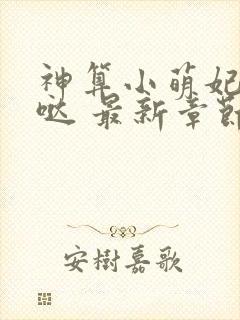 神算小萌妃
哒 最新章節
安樹嘉歌